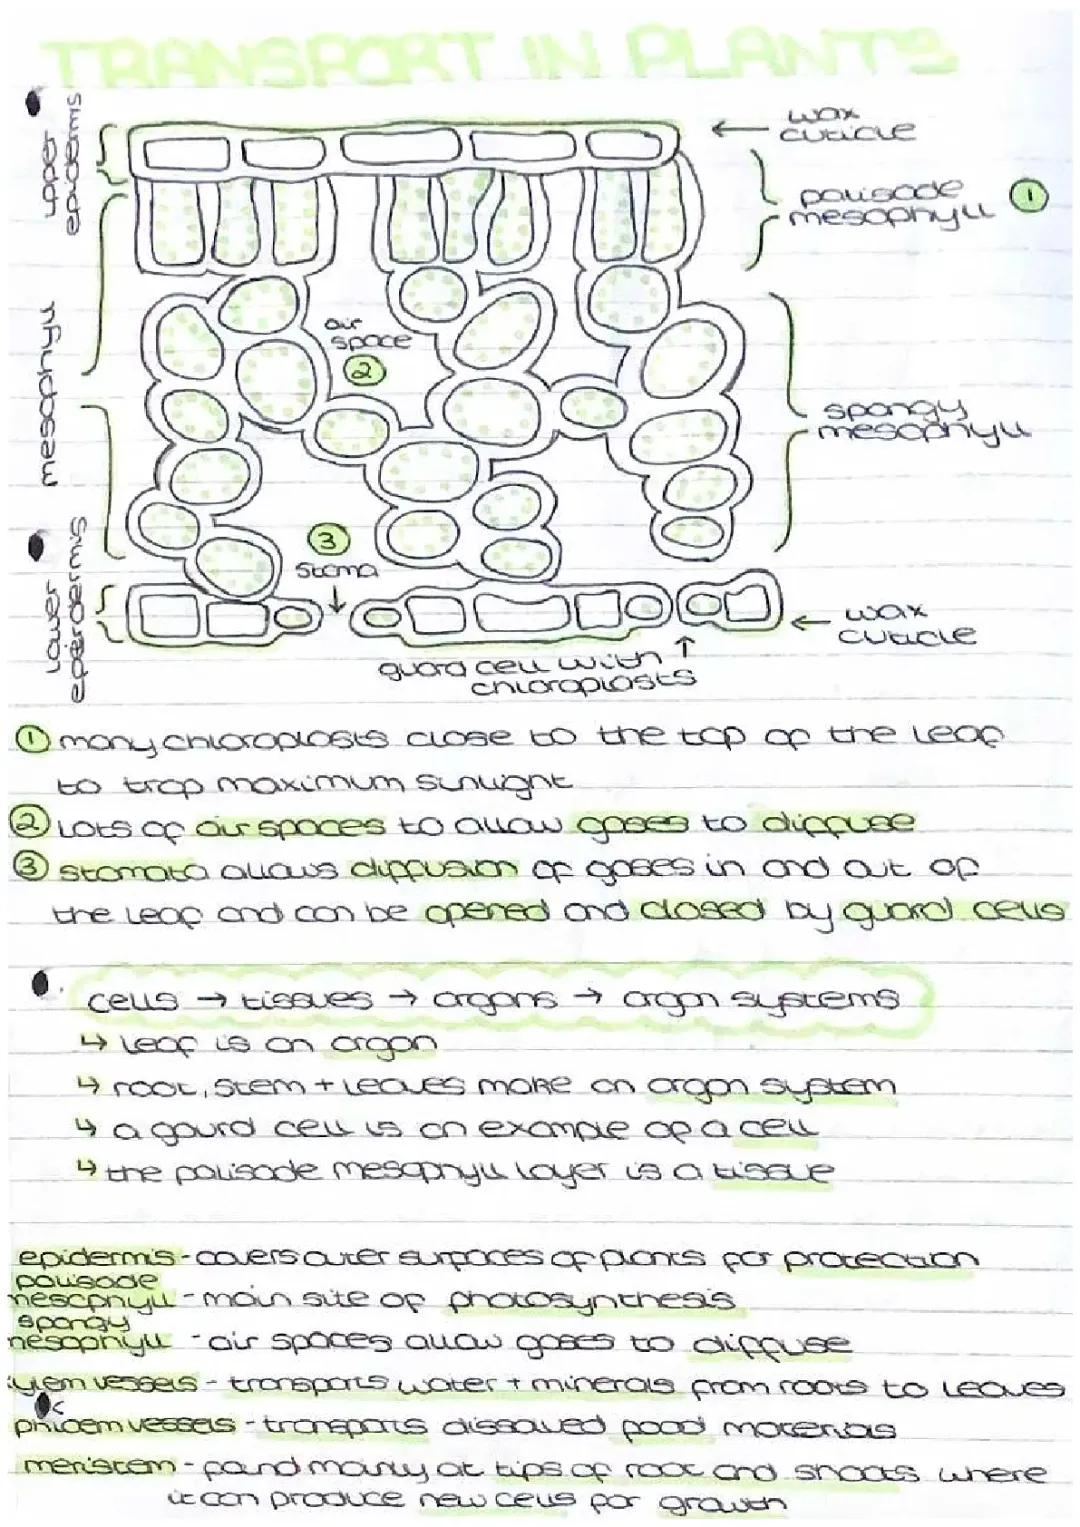 TRANSPORT IN PLANTS
upper
epidermis
wax
cuticle
palisade
mesophyll
1
mesophyll
air
space
2
spongy
mesophyll
3
stoma
lower
epidermis
wax
cuticle
guard cell with
chloroplasts
1 many chloroplasts close to the top of the leaf
to trap maximum sunlight
2 Lots of air spaces to allow gases to diffuse
3 stomata allows diffusion of gases in and out of
the leaf and can be opened and closed by guard cells
cells → tissues → organs → organ systems
↳ leaf is an organ
↳ root, stem + leaves make an organ system
↳ a gaurd cell is an example of a cell
↳ the palisade mesophyll layer is a tissue
epidermis - covers outer surfaces of plants for protection
palisade
mesophyll - main site of photosynthesis
spongy
mesophyll - air spaces allow gases to diffuse
xylem vessels - transports water + minerals from roots to leaves
phloem vessels - transports dissolved food materials
meristem - found mainly at tips of root and shoots where
it can produce new cells for growth